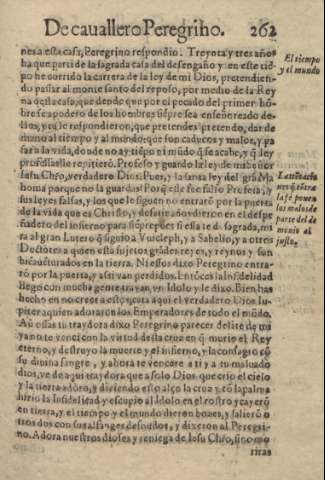 De cavallero Peregrino. 262
nes a esta casa, Peregrino respondio. Treynta y tres años
ha que parti de la sagrada casa del desengaño y en este tiē
po he corrido la carrera de la ley de mi Dios, pretendien-
do passar al monte santo del reposo, por medio de la Rey
na desta casa, que desde que por el pecado del primer hōbre
se apodero de los hombres se
llos, y tu le respondieron, que pretendes pretendo, dar de
mano al tiempo y al mundo, que son caducos y malos, y pa
sar a la vida, donde no ay tiēpo ni mūdo q̃ se acabe, y q̃ ley
professas le repitierō. Professo y guardo la ley de mi señor
Iesu Chro, verdadero Dios. Pues, y la santa ley del grā Ma
homa parque no la guardas? Porq̃ este fue falso Profeta, y
sus leyes falsas, y los que le siguen no entrarō por la puerta
de la vida que es Christo, y
ñadero del infierno para siempre
ra al gran Lutero q̃ siguio a Vuicleph, y a Sabelio, y a otros
Doctores a quien esta sujetos grādes reyes, y reynos y sun
bicauturados en la tierra. Ni essos dixo Peregrino entra-
rō por la puerta, y assi van perdidos. Entōces la Infidelidad
llego con mucha gente trayan, vn Idolo y le dixo. Bien has
hecho en no creer a estos, cata aqui el verdadero Dios Iu-
piter a quien adorarō los Emperadores de todo el mūdo.
Au ossas tu traydora dixo Peregrino parecer delāte de mi
ya no te venci con la virtud desta cruz en q̃ murio el Rey
eterno, y destruyo la muerte y el infierno, y la consagro cō
su diuina sangre, y ahora te vencere a ti y a tu maluado
dios, ve de aqui traydora que a solo Dios que crio el cielo
y la tierra adoro, y diziendo esto alço la cruz y cō la palma
hirio la Infidelidad y escupio al Idolo en el rostro y cayerō
en tierra, y el tiempo y el mundo dieron bozes, y salierō o
tros dos con sus alfanges desnudos, y dixeron al Peregri-
no. Adora nuestros dioses y reniega de Iesu Chro, sino mo
riras
El tiempo
y el mundo
nos q̃ cōtra
la fè ponen
los malos de
parte del de
monio al
justo.